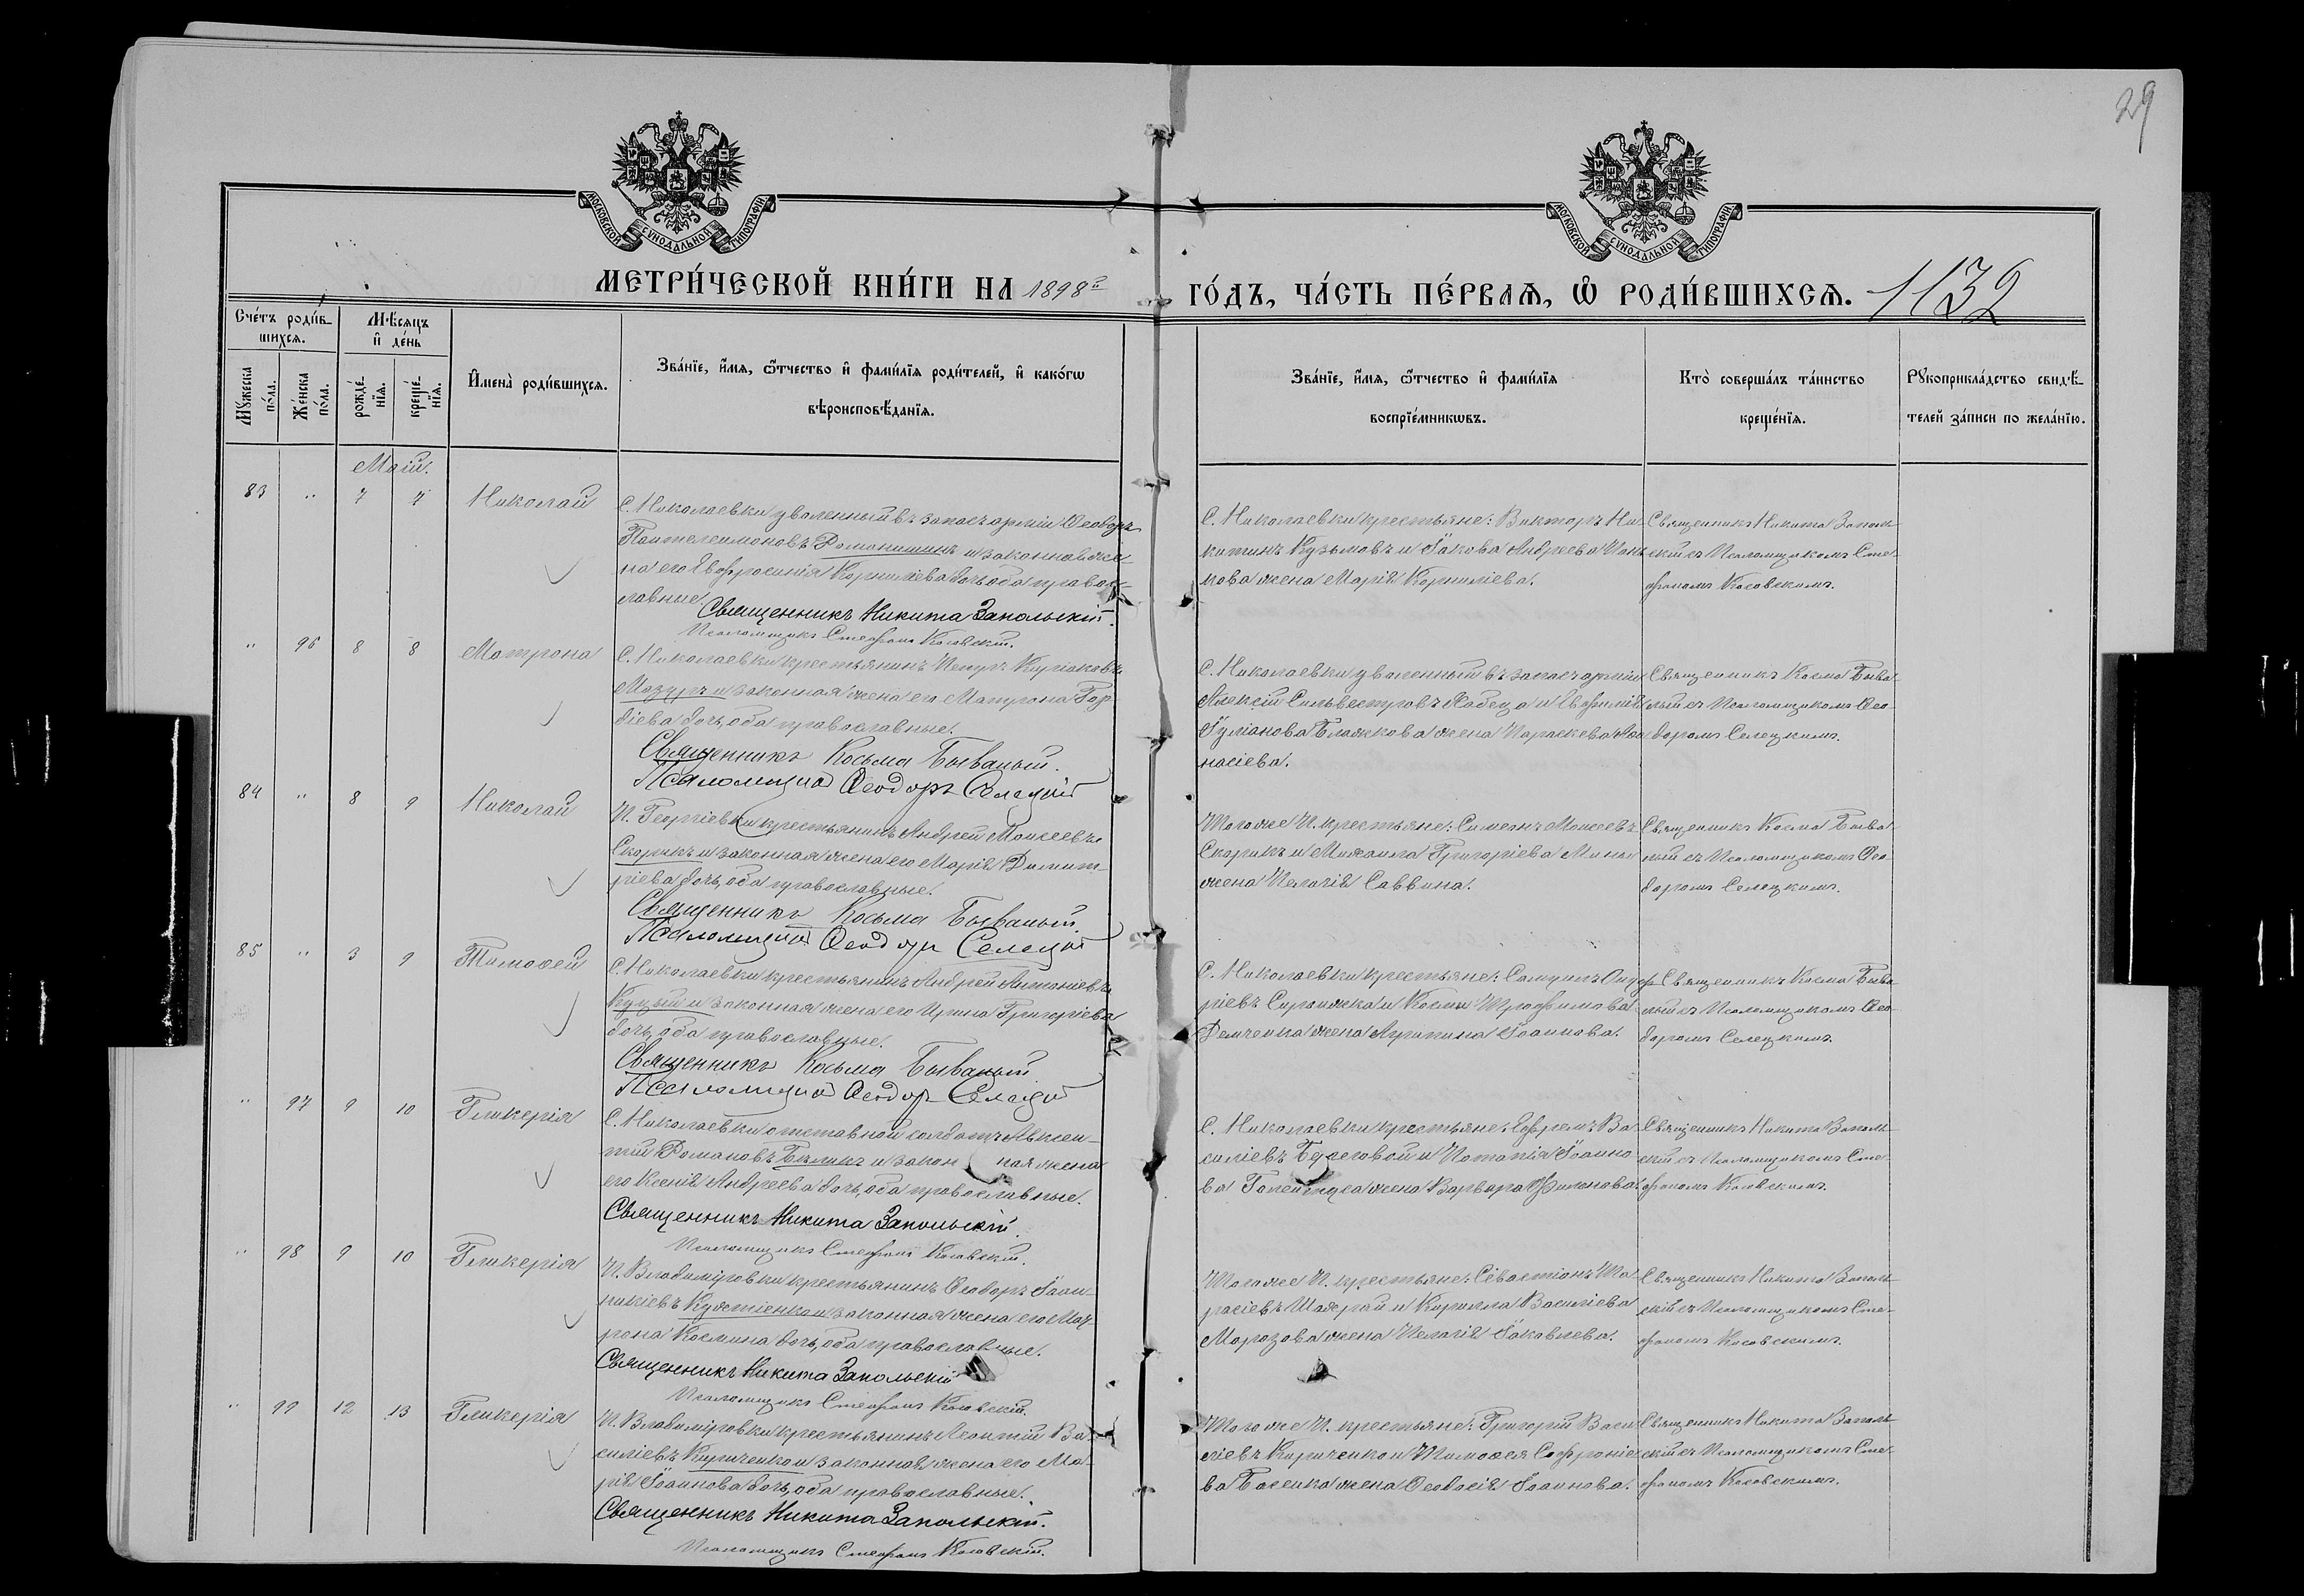 29
МОСКОВСКОЙ СѴНОДАЛЬНОЙ ТИПОГРАФІИ
МОСКОВСКОЙ СѴНОДАЛЬНОЙ ТИПОГРАФІИ
МЕТРИ́ЧЕСКОЙ КНИ́ГИ НА 1898й
ГО́ДЪ, ЧА́СТЬ ПЕ́РВАѦ, Ѡ҆ РОДИ́ВШИХСѦ. 1132
Сче́тъ роди́в-
шихсѧ.
Мѣсѧцъ
и҆ де́нь
Мꙋ́жеска по́ла.
Же́нска по́ла.
рожде́-нїѧ.
креще́-нїѧ.
И҆мена̀ роди́вшихсѧ.
Зва́нїе, и҆́мѧ, ѻ҆́тчество и҆ фамѝлїѧ роди́телей, и҆ како́гѡ
вѣроисповѣ́данїѧ.
Зва́нїе, и҆́мѧ, ѻ҆́тчество и҆ фамѝлїѧ
воспрїе́мникѡвъ.
Кто̀ соверша́лъ та́инство
креще́нїѧ.
Рꙋкоприкла́дство свидѣ́-
телей за́писи по жела́нїю.
Май.
83 " 7 7 Николай
С. Николаевки уволенный въ запасъ арміи Ѳеодоръ
Пантелеимоновъ Романишинъ и законная же-
на его Евфросинія Корниліева дочь, оба правос-
лавные.
Священникъ Никита Запольскій.
Псаломщикъ Стефанъ Косовскій.
С. Николаевки крестьяне: Викторъ Ни-
китинъ Кузьмовъ и Іакова Андреева
кова жена Марія Корниліева.
Священникъ Никита Заполь-
скій съ Псаломщикомъ Сте-
фаномъ Косовскимъ.
" 96 8 8 Матрона
С. Николаевки крестьянинъ Петръ Киріаковъ
Мазуръ и законная жена его Матрона Гор-
діева дочь, оба православные.
Священникъ Косьма Бываный.
Псаломщикъ Ѳеодоръ Селецкій
С. Николаевки уволенный въ запасъ арміи
Алексій Сильвестровъ и Евфимія
Іуліанова Блажкова жена Параскева Ѳа-
насіева.
Священникъ Косма Быва-
ный съ Псаломщикомъ Ѳео-
доромъ Селецкимъ.
84 " 8 9 Николай
П. Георгіевки крестьянинъ Андрей Моисеевъ
Скорикъ и законная жена его Марія Димит-
ріева дочь, оба православные.
Священникъ Косьма Бываный.
Псаломщикъ Ѳеодоръ Селецкій
Того же П. крестьяне: Симеонъ Моисеевъ
Скорикъ и Михаила Григоріева
жена Пелагія Саввина.
Священникъ Косма Быва-
ный съ Псаломщикомъ Ѳео-
доромъ Селецкимъ.
85 " 3 9 Тимоѳей
С. Николаевки крестьянинъ Андрей Антоніевъ
Куцый и законная жена его Ирина Григоріева
дочь, оба православные.
Священникъ Косьма Бываный
Псаломщикъ Ѳеодоръ Селецкій
С. Николаевки крестьяне: Самуилъ Онуф-
ріевъ Сироижка и Космы Трофимова
Демченка жена Агрипина Іоаннова.
Священникъ Косма Быва-
ный съ Псаломщикомъ Ѳео-
доромъ Селецкимъ.
" 97 9 10 Гликерія
С. Николаевки отставной солдатъ Авксен-
тій Романовъ Бѣликъ и законная жена
его Ксенія Андреева дочь, оба православные.
Священникъ Никита Запольскій.
Псаломщикъ Стефанъ Косовскій.
С. Николаевки крестьяне: Ефремъ Ва-
силіевъ Береговой и Потапія Іоанно-
ва жена Варвара Филипова.
Священникъ Никита Заполь-
скій съ Псаломщикомъ Сте-
фаномъ Косовскимъ.
" 98 9 10 Гликерія
П. Владиміровки крестьянинъ Ѳеодоръ Іоан-
никіевъ Кустіенко и законная жена его Мат-
рона Космина дочь, оба православные.
Священникъ Никита Запольскій
Псаломщикъ Стефанъ Косовскій.
Того же П. крестьяне: Севастіанъ Та-
расіевъ Шахрай и Кирилла Василіева
Морозова жена Пелагія Іаковлева.
Священникъ Никита Заполь-
скій съ Псаломщикомъ Сте-
фаномъ Косовскимъ.
" 99 12 13 Гликерія
П. Владиміровки крестьянинъ Леонтій Ва-
силіевъ Кириченко и законная жена его Ма-
рія Іоаннова дочь, оба православные.
Священникъ Никита Запольскій.
Псаломщикъ Стефанъ Косовскій.
Того же П. крестьяне: Григорій Васи-
ліевъ Кириченко и Тимоѳея Софроніе-
ва Босенка жена Ѳеодосія Іоаннова.
Священникъ Никита Заполь-
скій съ Псаломщикомъ Сте-
фаномъ Косовскимъ.